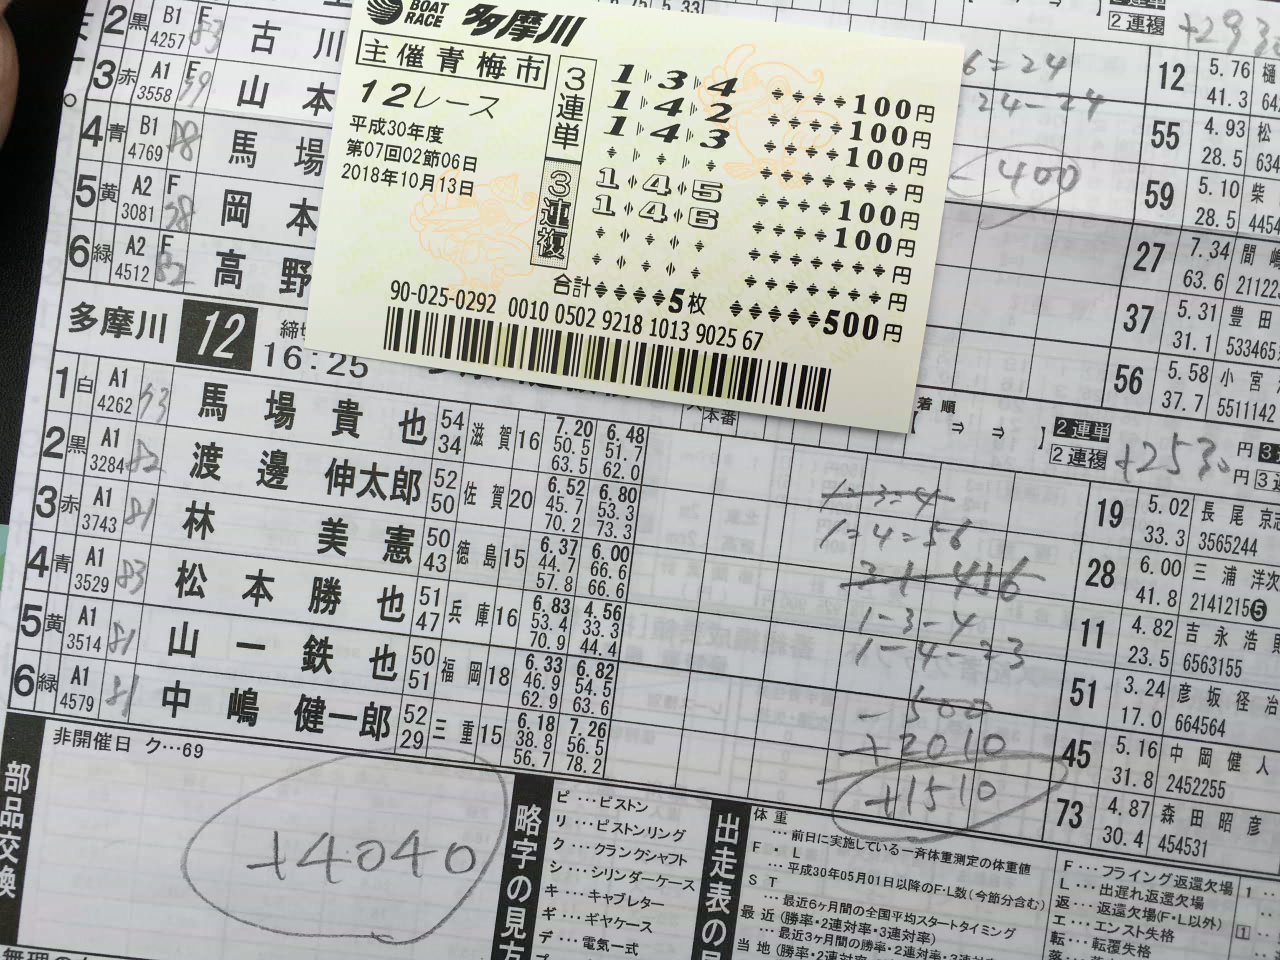 BOAT RACE 多摩川
主催青梅市
12レース
平成30年度
第07回02節06日
2018年10月13日
3連単
1 3 4 100円
1 4 2 100円
1 4 3 100円
円
3連複
1 4 5 100円
1 4 6 100円
円
円
合計 5枚 500円
90-025-0292 0010 0502 9218 1013 9025 67
2 黒 B1 4257 F 83 古川
3 赤 A1 3558 F 59 山本
4 青 B1 4769 78 馬場
5 黄 A2 3081 F 78 岡本
6 緑 A2 4512 F 82 高野
2連複
6=24
24-24
-400
12 5.76 41.3 樋
55 4.93 28.5 松 634
59 5.10 28.5 柴 4454
27 7.34 63.6 間嶋 21122
37 5.31 31.1 豊田 533465
56 5.58 37.7 小宮 5511142
多摩川 12 16:25
本番
着順
【 ⇒ ⇒ 】
2連単 円
2連複 +2530 円
1 白 A1 4262 53 馬場貴也 54 34 滋賀 16 7.20 50.5 63.5 6.48 51.7 62.0
2 黒 A1 3284 82 渡邊伸太郎 52 50 佐賀 20 6.52 45.7 70.2 6.80 53.3 73.3
3 赤 A1 3743 81 林美憲 50 43 徳島 15 6.37 44.7 57.8 6.00 66.6 66.6
4 青 A1 3529 83 松本勝也 51 47 兵庫 16 6.83 53.4 70.9 4.56 33.3 44.4
5 黄 A1 3514 81 山一鉄也 50 51 福岡 18 6.33 46.9 62.9 6.82 54.5 63.6
6 緑 A1 4579 81 中嶋健一郎 52 29 三重 15 6.18 38.8 56.7 7.26 56.5 78.2
1-3-4
1=4=56
3-1-456
1-3-4
1-4-23
-500
+2010
+1510
19 5.02 33.3 長尾京志 3565244
28 6.00 41.8 三浦洋次 2141215❺
11 4.82 23.5 吉永浩則 6563155
51 3.24 17.0 彦坂径治 664564
45 5.16 31.8 中岡健人 2452255
73 4.87 30.4 森田昭彦 454531
部品交換
非開催日 ク…69
+4040
略字の見方
ピ…ピストン
リ…ピストンリング
ク…クランクシャフト
シ…シリンダーケース
キ…キャブレター
ギ…ギヤケース
デ…電気一式
出走表の見
体重
…前日に実施している一斉体重測定の体重値
F・L
…平成30年05月01日以降のF・L数(今節分含む)
ST
…最近6ヶ月間の全国平均スタートタイミング
最近(勝率・2連対率・3連対率)
…最近3ヶ月間の勝率・2連対率・3連対率
当地(勝率・2連対率・3連対率)
F…フライング返還欠場
L…出遅れ返還欠場
返…返還欠場(F・L以外)
エ…エンスト失格
転…転覆失格